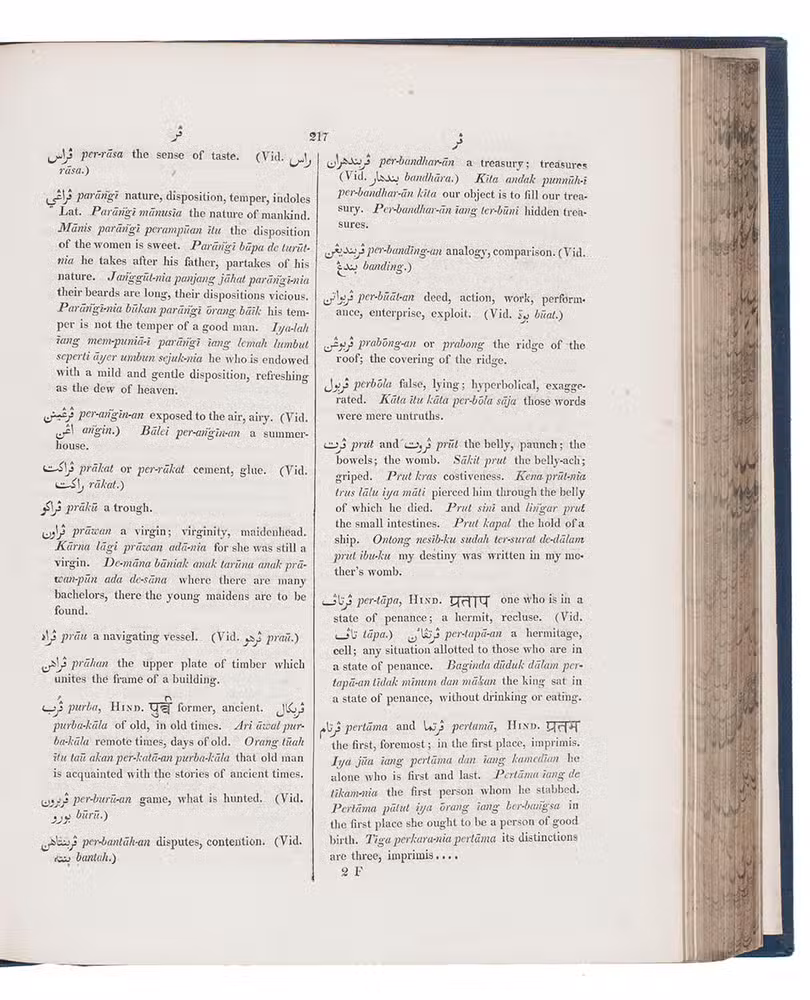 ڤر
217
ڤر
ڤراس per-rāsa the sense of taste. (Vid. راس
rāsa.)
ڤراڠي parāngī nature, disposition, temper, indoles
Lat. Parāngī mānusīa the nature of mankind.
Mānis parāngī perampūan ītu the disposition
of the women is sweet. Parāngī bāpa de turūt-
nia he takes after his father, partakes of his
nature. Janggūt-nia panjang jāhat parāngī-nia
their beards are long, their dispositions vicious.
Parāngī-nia būkan parāngī ōrang bāīk his tem-
per is not the temper of a good man. Iya-lah
īang mem-puniā-i parāngī īang lemah lumbut
seperti āyer umbun sejuk-nia he who is endowed
with a mild and gentle disposition, refreshing
as the dew of heaven.
per-angīn-an exposed to the air, airy. (Vid.
اڠين angīn.) Bālei per-angīn-an a summer-
house.
ڤراكت prākat or per-rākat cement, glue. (Vid.
راكت rākat.)
ڤراكو prākū a trough.
ڤراون prāwan a virgin; virginity, maidenhead.
Kārna lāgi prāwan adā-nia for she was still a
virgin. De-māna bāniak anak tarūna anak prā-
wan-pūn ada de-sāna where there are many
bachelors, there the young maidens are to be
found.
ڤراو prāu a navigating vessel. (Vid. ڤرهو praū.)
ڤراهن prāhan the upper plate of timber which
unites the frame of a building.
ڤرب purba, HIND. पुर्ब former, ancient. ڤربكال
purba-kāla of old, in old times. Ari āwal pur-
ba-kāla remote times, days of old. Orang tūah
ītu taū akan per-katā-an purba-kāla that old man
is acquainted with the stories of ancient times.
ڤربورون per-burū-an game, what is hunted. (Vid.
بورو būrū.)
ڤربنتاهن per-bantāh-an disputes, contention. (Vid.
بنته bantah.)
ڤربندهران per-bandhar-ān a treasury; treasures
(Vid. بندهار bandhāra.) Kīta andak punnūh-i
per-bandhar-ān kīta our object is to fill our trea-
sury. Per-bandhar-ān īang ter-būni hidden trea-
sures.
ڤربنديڠن per-bandīng-an analogy, comparison. (Vid.
بندڠ banding.)
ڤربواتن per-būāt-an deed, action, work, perform-
ance, enterprise, exploit. (Vid. بوة būat.)
ڤربوڠن prabōng-an or prabong the ridge of the
roof; the covering of the ridge.
ڤربول perbōla false, lying; hyperbolical, exagge-
rated. Kāta ītu kāta per-bōla sāja those words
were mere untruths.
ڤرت prut and ڤروت prūt the belly, paunch; the
bowels; the womb. Sākit prut the belly-ach;
griped. Prut kras costiveness. Kena prūt-nia
trus lālu iya māti pierced him through the belly
of which he died. Prut sinī and lingar prut
the small intestines. Prut kapal the hold of a
ship. Ontong nesīb-ku sudah ter-surat de-dālam
prut ibu-ku my destiny was written in my mo-
ther's womb.
ڤرتاڤ per-tāpa, HIND. प्रताप one who is in a
state of penance; a hermit, recluse. (Vid.
تاڤ tāpa.) ڤرتڤاٴن per-tapā-an a hermitage,
cell; any situation allotted to those who are in
a state of penance. Baginda dūduk dālam per-
tapā-an tīdak mīnum dan mākan the king sat in
a state of penance, without drinking or eating.
ڤرتام pertāma and ڤرتما pertamā, HIND. प्रतम
the first, foremost; in the first place, imprimis.
Iya jūa īang pertāma dan īang kamedīan he
alone who is first and last. Pertāma īang de
tīkam-nia the first person whom he stabbed.
Pertāma pātut iya ōrang īang ber-bangsa in
the first place she ought to be a person of good
birth. Tīga perkara-nia pertāma its distinctions
are three, imprimis....
2 F